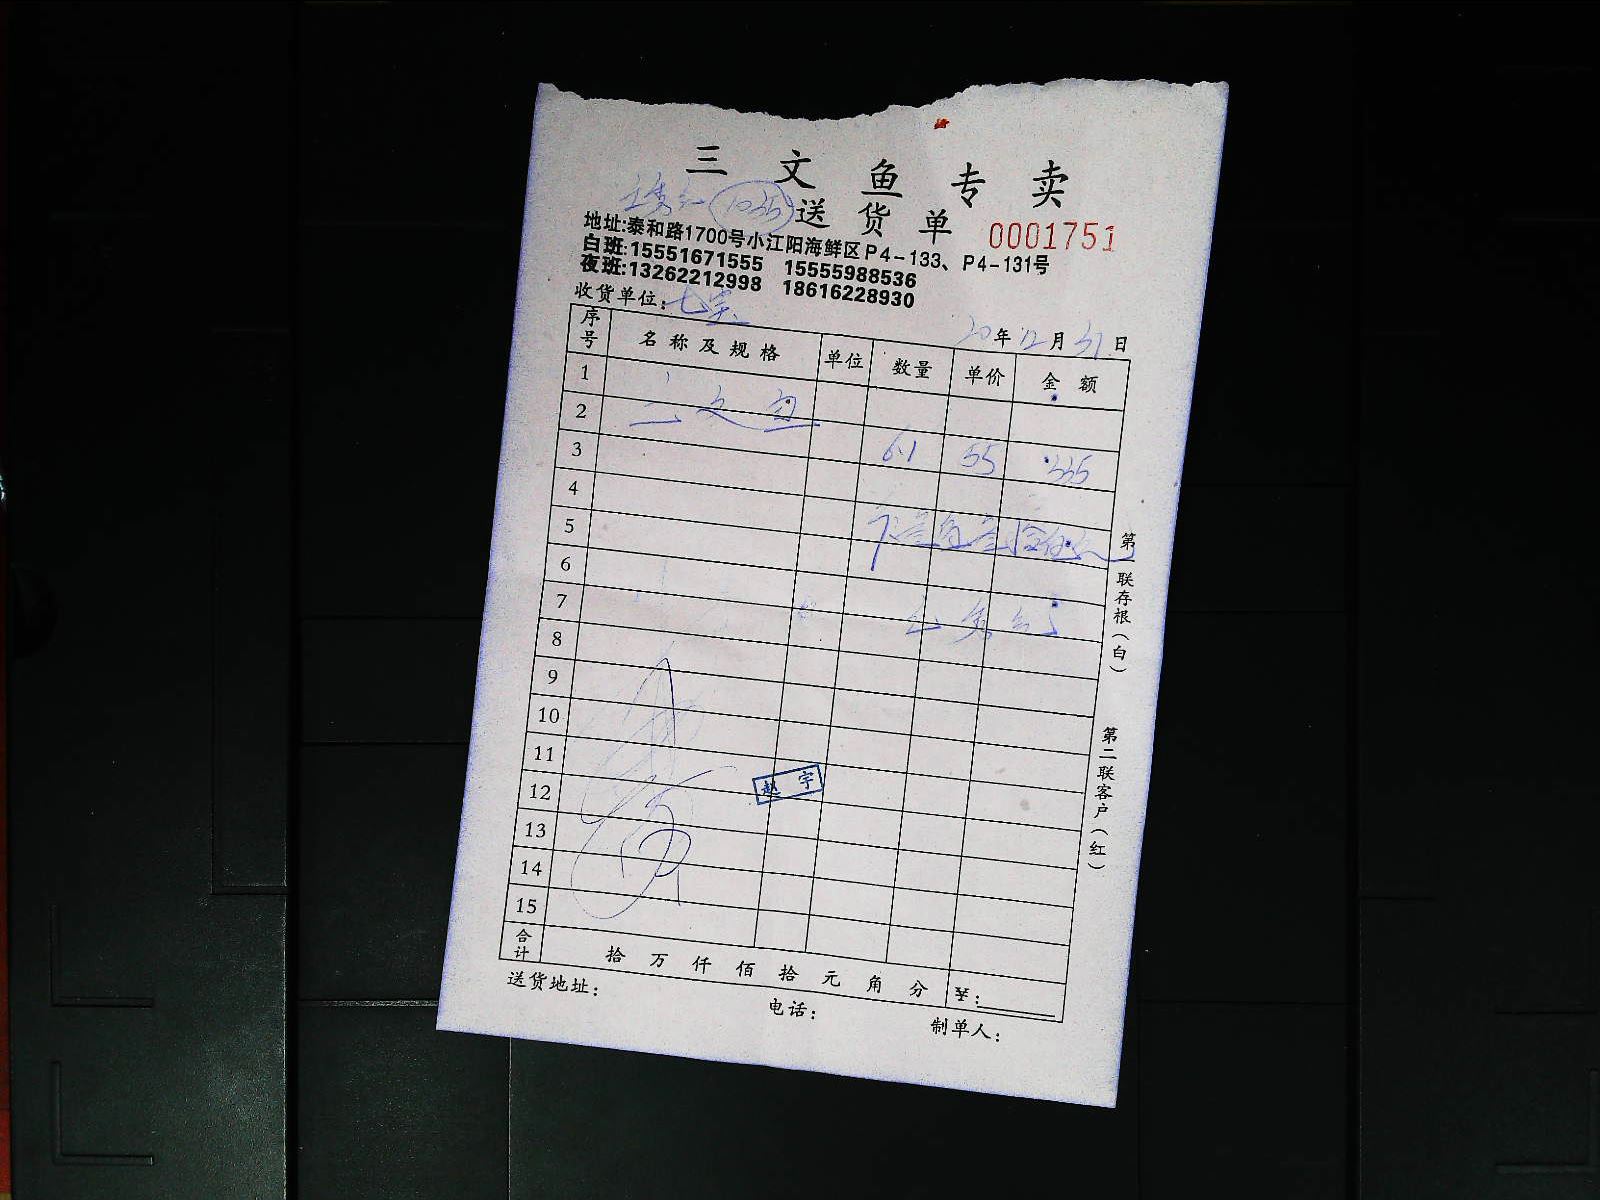 三文鱼专卖
送货单 0001751
地址:泰和路1700号小江阳海鲜区P4-133、P4-131号
白班:15551671555 15555988536
夜班:13262212998 18616228930
收货单位:七宝
20年12月31日
序号 名称及规格 单位 数量 单价 金额
1
2 三文鱼
3 6.1 55 335
4
5
6
7
8
9
10
11
12 赵宇
13
14
15
合计 拾万仟佰拾元角分 ¥:
送货地址: 电话: 制单人:
第一联存根(白)
第二联客户(红)